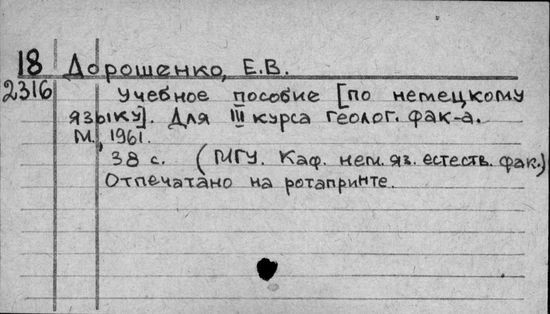 18 Дорошенко, Е.В.
2316 Учебное пособие [по немецкому
языку]. Для III курса геолог. фак-а.
М., 1961.
38 с. (МГУ. Каф. нем. яз. естеств. фак.)
Отпечатано на ротапринте.